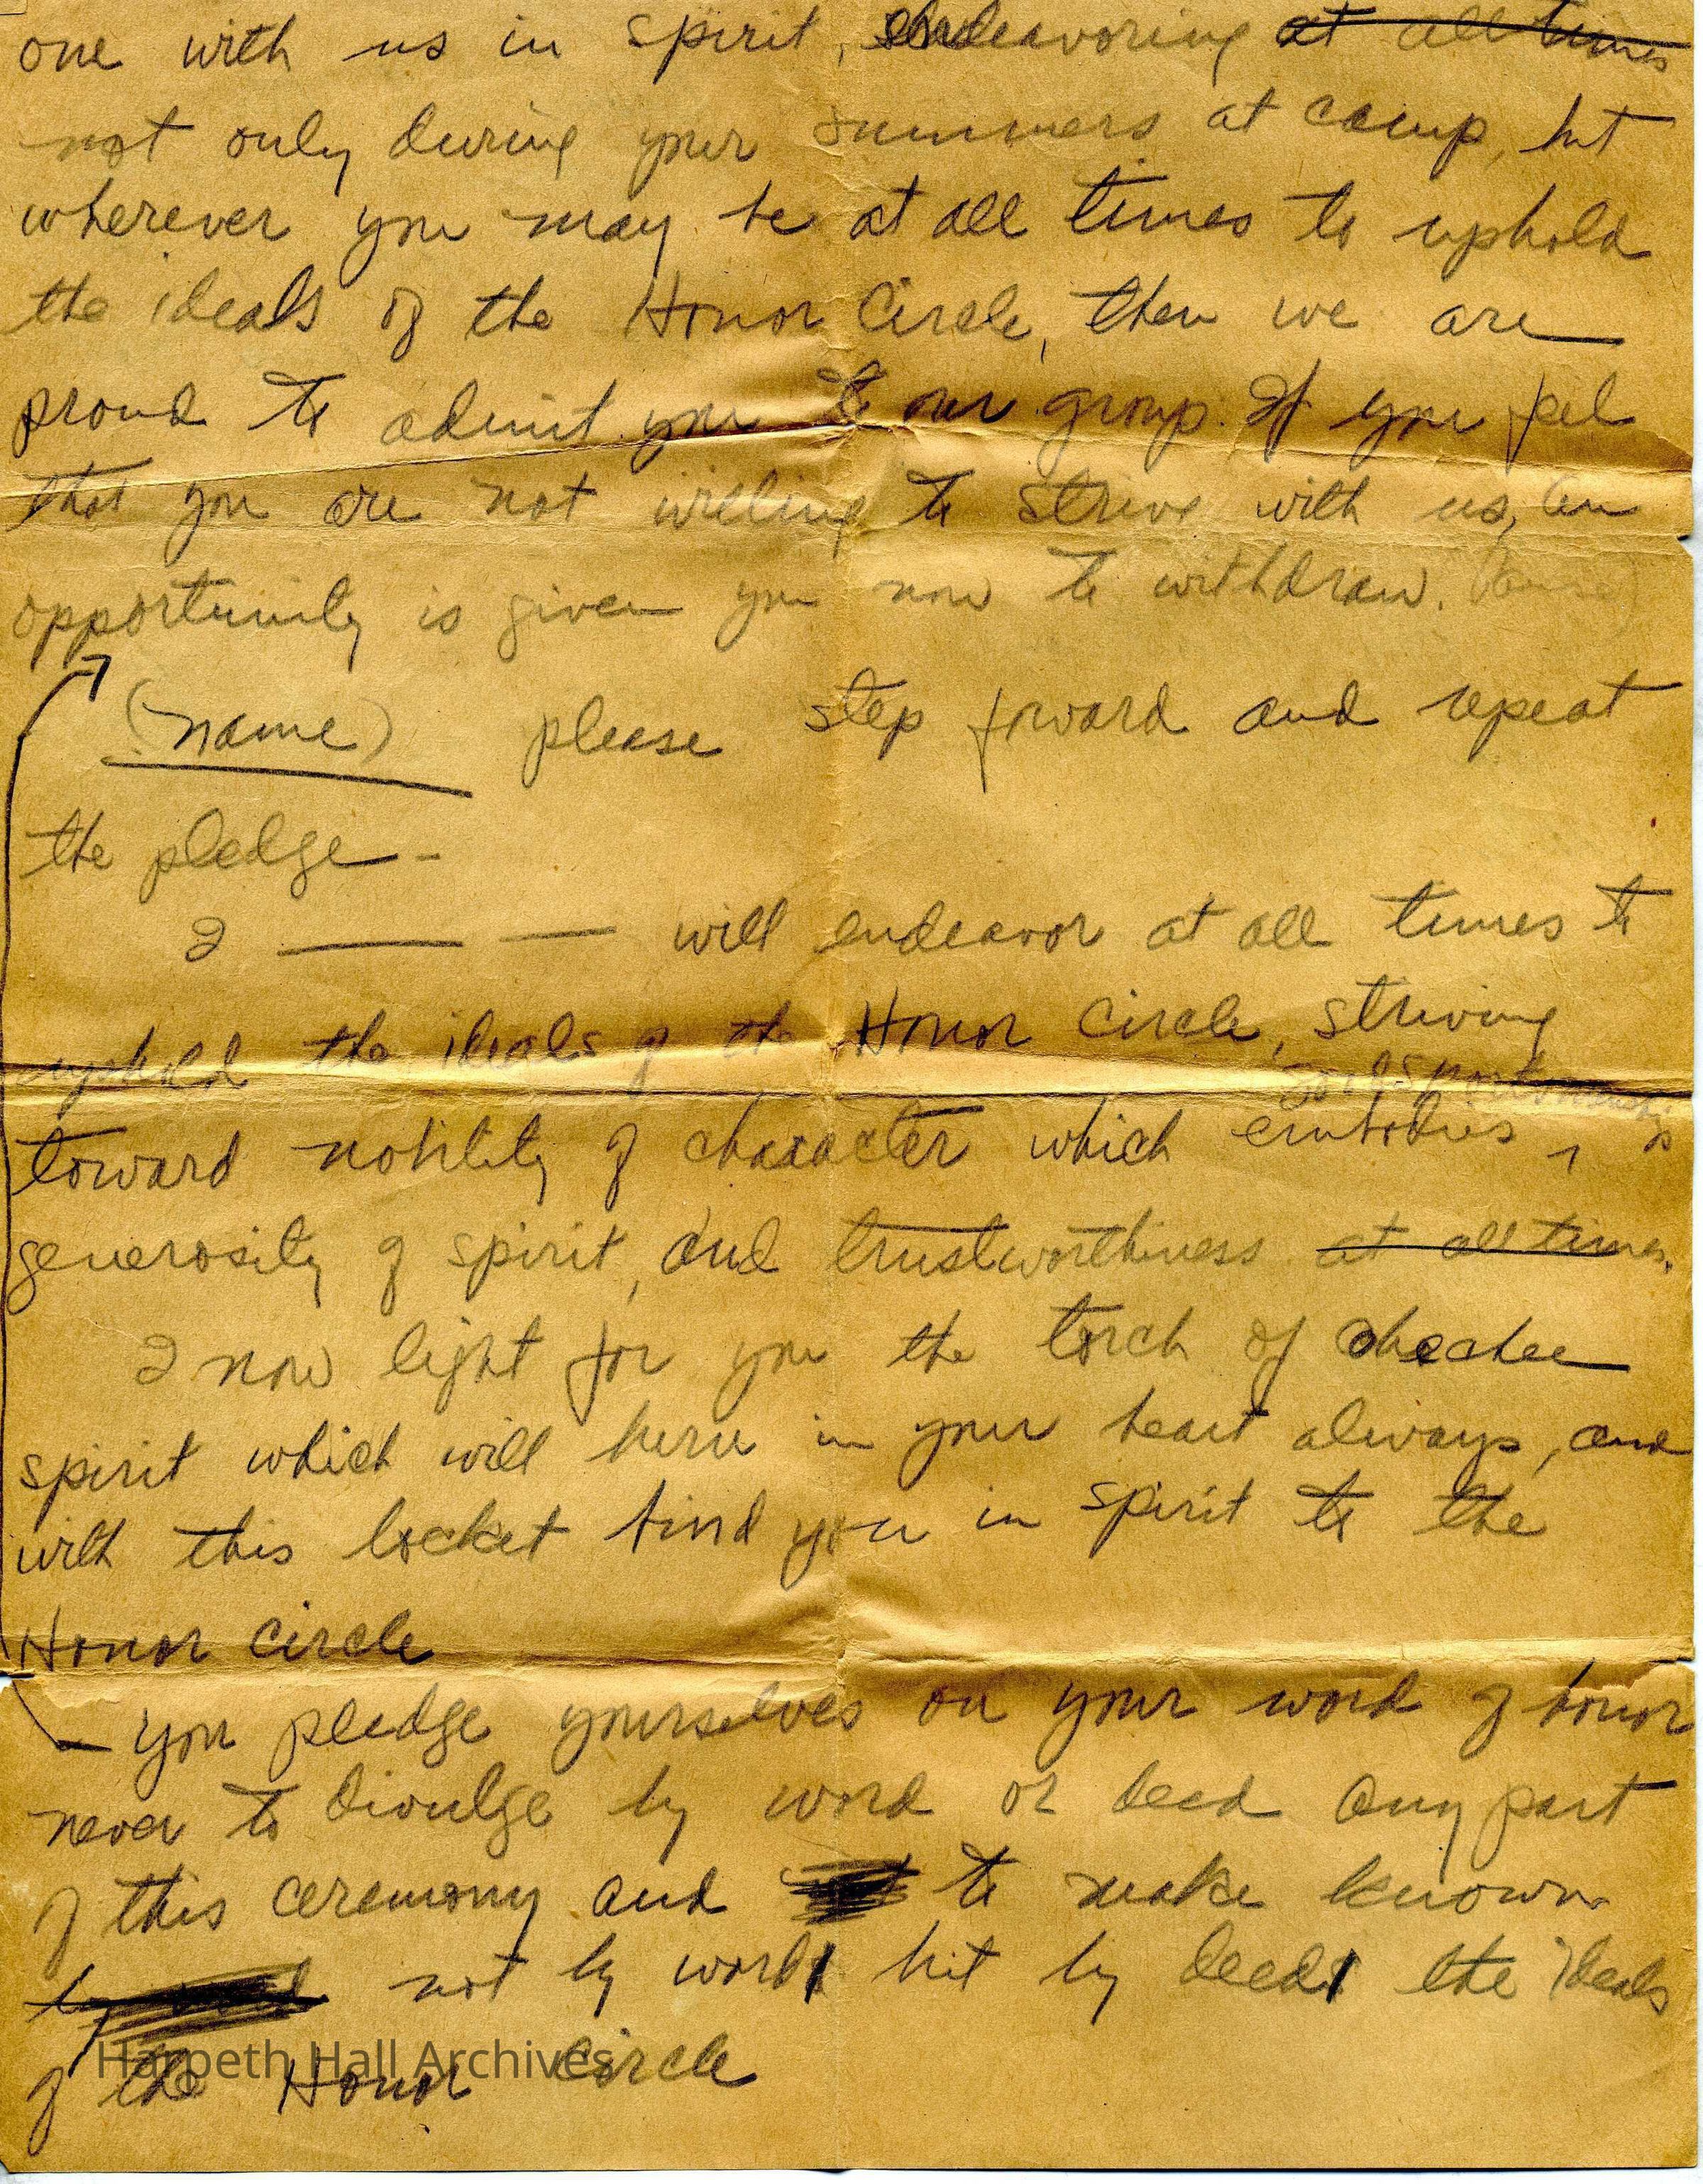 one with us in spirit, endeavoring at all times
not only during your summers at camp, but
wherever you may be at all times to uphold
the ideals of the Honor Circle, then we are
proud to admit you to our group. If you feel
that you are not willing to strive with us, an
opportunity is given you now to withdraw. (Pause)
(name) please step forward and repeat
the pledge -
I —— —— will endeavor at all times to
uphold the ideals of the Honor Circle, striving
good sportsmanship
toward nobility of character which embodies
generosity of spirit, and trustworthiness at all times.
I now light for you the torch of
spirit which will burn in your heart always, and
with this locket bind you in spirit to the
Honor Circle
you pledge yourselves on your word of honor
never to divulge by word or deed any part
of this ceremony and to make known
by not by word but by deed the ideals
of the Honor Circle
Harpeth Hall Archives